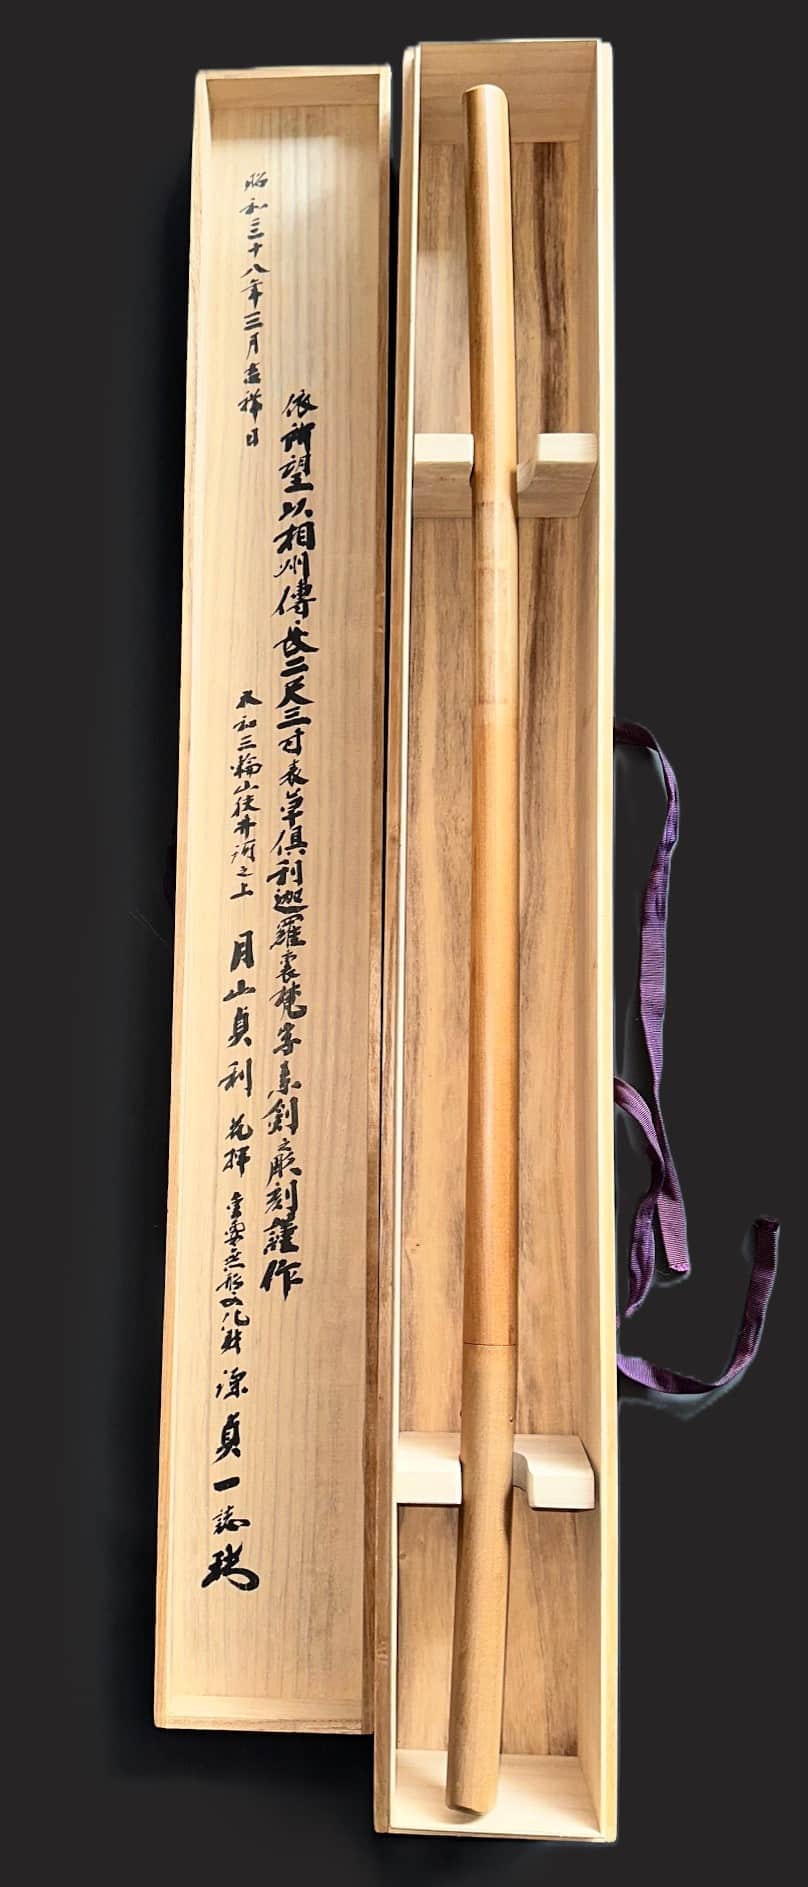 依所望以相州傳長二尺三寸表草倶利迦羅裏梵字素剣之彫刻謹作
昭和五十八年三月吉祥日
大和三輪山狭井河之上 月山貞利 花押 重要無形文化財 源貞一誌